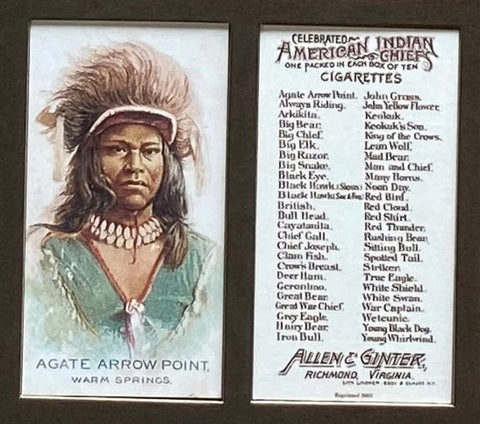 AGATE ARROW POINT,
WARM SPRINGS.
CELEBRATED
AMERICAN INDIAN
CHIEFS
ONE PACKED IN EACH BOX OF TEN
CIGARETTES
Agate Arrow Point.
Always Riding.
Arkikita.
Big Bear.
Big Chief.
Big Elk.
Big Razor.
Big Snake.
Black Eye.
Black Hawk (Sioux)
Black Hawk (Sac & Fox)
British.
Bull Head.
Cayatanita.
Chief Gall.
Chief Joseph.
Clam Fish.
Crow's Breast.
Deer Ham.
Geronimo.
Great Bear.
Great War Chief.
Grey Eagle.
Hairy Bear.
Iron Bull.
John Grass.
John Yellow Flower.
Keokuk.
Keokuk's Son.
King of the Crows.
Lean Wolf.
Mad Bear.
Man and Chief.
Many Horns.
Noon Day.
Red Bird.
Red Cloud.
Red Shirt.
Red Thunder.
Rushing Bear.
Sitting Bull.
Spotted Tail.
Striker.
True Eagle.
White Shield.
White Swan.
War Captain.
Wetcunie.
Young Black Dog.
Young Whirlwind.
ALLEN & GINTER,
RICHMOND, VIRGINIA.
LINDNER, EDDY & CLAUSS, N.Y.
Reprinted